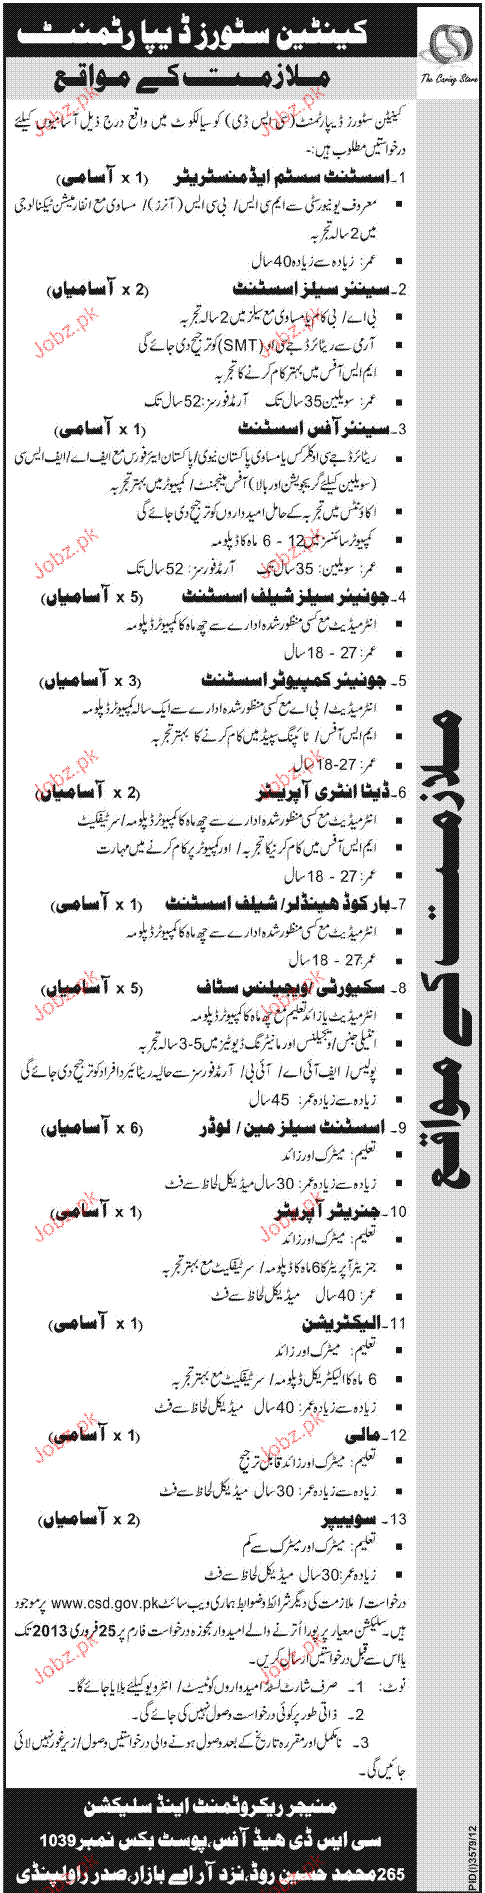 کینٹین سٹورز ڈیپارٹمنٹ
ملازمت کے مواقع
The Caring Store
کینٹین سٹورز ڈیپارٹمنٹ (سی ایس ڈی) کو سیالکوٹ میں واقع درج ذیل آسامیوں کیلئے
درخواستیں مطلوب ہیں:-
1۔ اسسٹنٹ سسٹم ایڈمنسٹریٹر (1 x آسامی)
▪ معروف یونیورسٹی سے ایم سی ایس/ بی سی ایس (آنرز)/ مساوی مع انفارمیشن ٹیکنالوجی
میں 2 سالہ تجربہ
▪ عمر: زیادہ سے زیادہ 40 سال
2۔ سینئر سیلز اسسٹنٹ (2 x آسامیاں)
▪ بی اے/ بی کام یا مساوی مع سیلز میں 2 سالہ تجربہ
▪ آرمی سے ریٹائرڈ جے سی او (SMT) کو ترجیح دی جائے گی
▪ ایم ایس آفس میں بہتر کام کرنے کا تجربہ
▪ عمر: سویلین 35 سال تک آرمڈ فورسز: 52 سال تک
3۔ سینئر آفس اسسٹنٹ (1 x آسامی)
▪ ریٹائرڈ جے سی او کلرکس یا مساوی پاکستان نیوی/ پاکستان ایئر فورس مع ایف اے/ ایف ایس سی
(سویلین کیلئے گریجویشن اور بالا) آفس مینجمنٹ/ کمپیوٹر میں بہتر تجربہ
▪ اکاؤنٹس میں تجربہ کے حامل امیدواروں کو ترجیح دی جائے گی
▪ کمپیوٹر سائنسز میں 12 - 6 ماہ کا ڈپلومہ
▪ عمر: سویلین: 35 سال تک آرمڈ فورسز: 52 سال تک
4۔ جونیئر سیلز شیلف اسسٹنٹ (5 x آسامیاں)
▪ انٹرمیڈیٹ مع کسی منظور شدہ ادارے سے چھ ماہ کا کمپیوٹر ڈپلومہ
▪ عمر: 27 - 18 سال
5۔ جونیئر کمپیوٹر اسسٹنٹ (3 x آسامیاں)
▪ انٹرمیڈیٹ/ بی اے مع کسی منظور شدہ ادارے سے ایک سالہ کمپیوٹر ڈپلومہ
▪ ایم ایس آفس/ ٹائپنگ سپیڈ میں کام کرنے کا بہتر تجربہ
▪ عمر: 27-18 سال
6۔ ڈیٹا انٹری آپریٹر (2 x آسامیاں)
▪ انٹرمیڈیٹ مع کسی منظور شدہ ادارے سے چھ ماہ کا کمپیوٹر ڈپلومہ/ سرٹیفکیٹ
▪ ایم ایس آفس میں کام کرنیکا تجربہ/ اور کمپیوٹر پر کام کرنے میں مہارت
▪ عمر: 27 - 18 سال
7۔ بار کوڈ ھینڈلر/ شیلف اسسٹنٹ (1 x آسامی)
▪ انٹرمیڈیٹ مع کسی منظور شدہ ادارے سے چھ ماہ کا کمپیوٹر ڈپلومہ
▪ عمر: 27 - 18 سال
8۔ سکیورٹی/ ویجیلنس سٹاف (5 x آسامیاں)
▪ انٹرمیڈیٹ یا زائد تعلیم مع چھ ماہ کا کمپیوٹر ڈپلومہ
▪ انٹیلی جنس/ ویجیلنس اور مانیٹرنگ ڈیوٹیز میں 5-3 سالہ تجربہ
▪ پولیس/ ایف آئی اے/ آئی بی/ آرمڈ فورسز سے حالیہ ریٹائیرڈ افراد کو ترجیح دی جائے گی
▪ زیادہ سے زیادہ عمر: 45 سال
9۔ اسسٹنٹ سیلز مین/ لوڈر (6 x آسامیاں)
▪ تعلیم: میٹرک اور زائد
▪ زیادہ سے زیادہ عمر: 30 سال میڈیکل لحاظ سے فٹ
10۔ جنریٹر آپریٹر (1 x آسامی)
▪ تعلیم: میٹرک اور زائد
▪ جنریٹر آپریٹر کا 6 ماہ کا ڈپلومہ/ سرٹیفکیٹ مع بہتر تجربہ
▪ عمر: 40 سال میڈیکل لحاظ سے فٹ
11۔ الیکٹریشن (1 x آسامی)
▪ تعلیم: میٹرک اور زائد
▪ 6 ماہ کا الیکٹریکل ڈپلومہ/ سرٹیفکیٹ مع بہتر تجربہ
▪ زیادہ سے زیادہ عمر: 40 سال میڈیکل لحاظ سے فٹ
12۔ مالی (1 x آسامی)
▪ تعلیم: میٹرک اور زائد قابل ترجیح
▪ زیادہ سے زیادہ عمر: 30 سال میڈیکل لحاظ سے فٹ
13۔ سویپر (2 x آسامیاں)
▪ تعلیم: میٹرک اور میٹرک سے کم
▪ زیادہ عمر: 30 سال میڈیکل لحاظ سے فٹ
درخواست/ ملازمت کی دیگر شرائط و ضوابط ہماری ویب سائٹ www.csd.gov.pk پر موجود
ہیں۔ سلیکشن معیار پر پورا اترنے والے امیدوار مجوزہ درخواست فارم پر 25 فروری 2013 تک
یا اس سے قبل درخواستیں ارسال کریں۔
نوٹ: 1۔ صرف شارٹ لسٹڈ امیدواروں کو ٹیسٹ/ انٹرویو کیلئے بلایا جائے گا۔
2۔ ذاتی طور پر کوئی درخواست وصول نہیں کی جائے گی۔
3۔ نامکمل اور مقررہ تاریخ کے بعد وصول ہونے والی درخواستیں وصول/ زیر غور نہیں لائی
جائیں گی۔
منیجر ریکروٹمنٹ اینڈ سلیکشن
سی ایس ڈی ھیڈ آفس، پوسٹ بکس نمبر 1039
265 محمد حسین روڈ، نزد آر اے بازار، صدر راولپنڈی
ملازمت کے مواقع
PID(I)3579/12
Jobz.pk